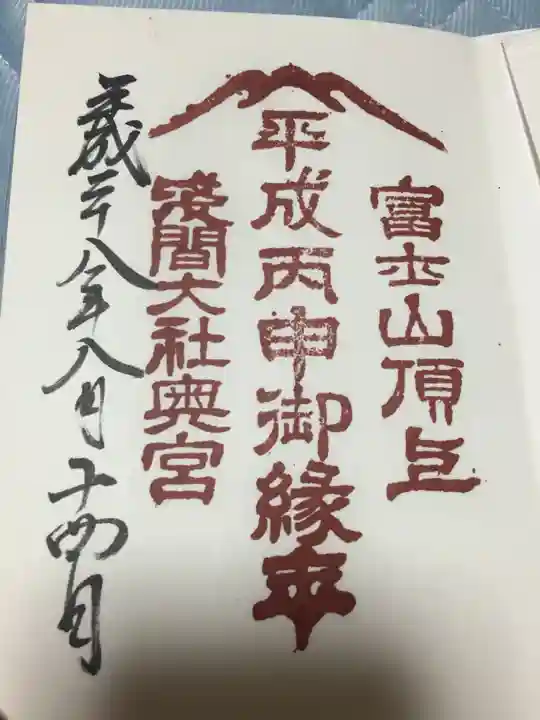 富士山頂上
平成丙申御縁年
浅間大社奥宮
平成二十八年八月十四日